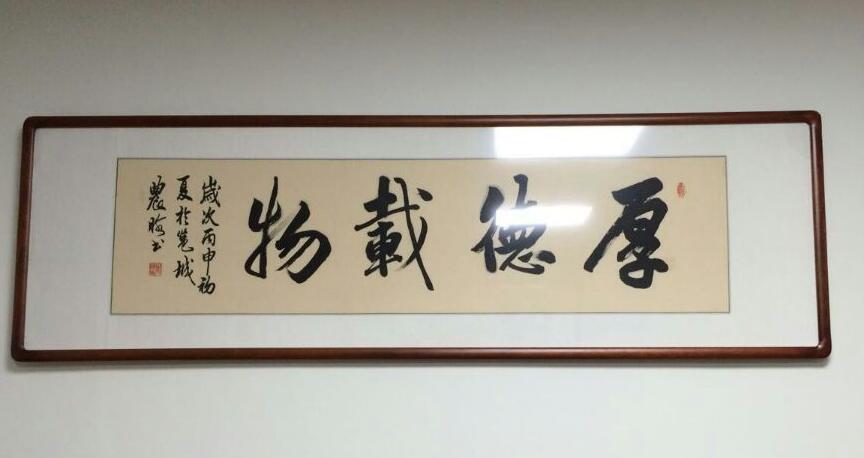 厚德載物
歲次丙申初
夏於笔城
農晦书